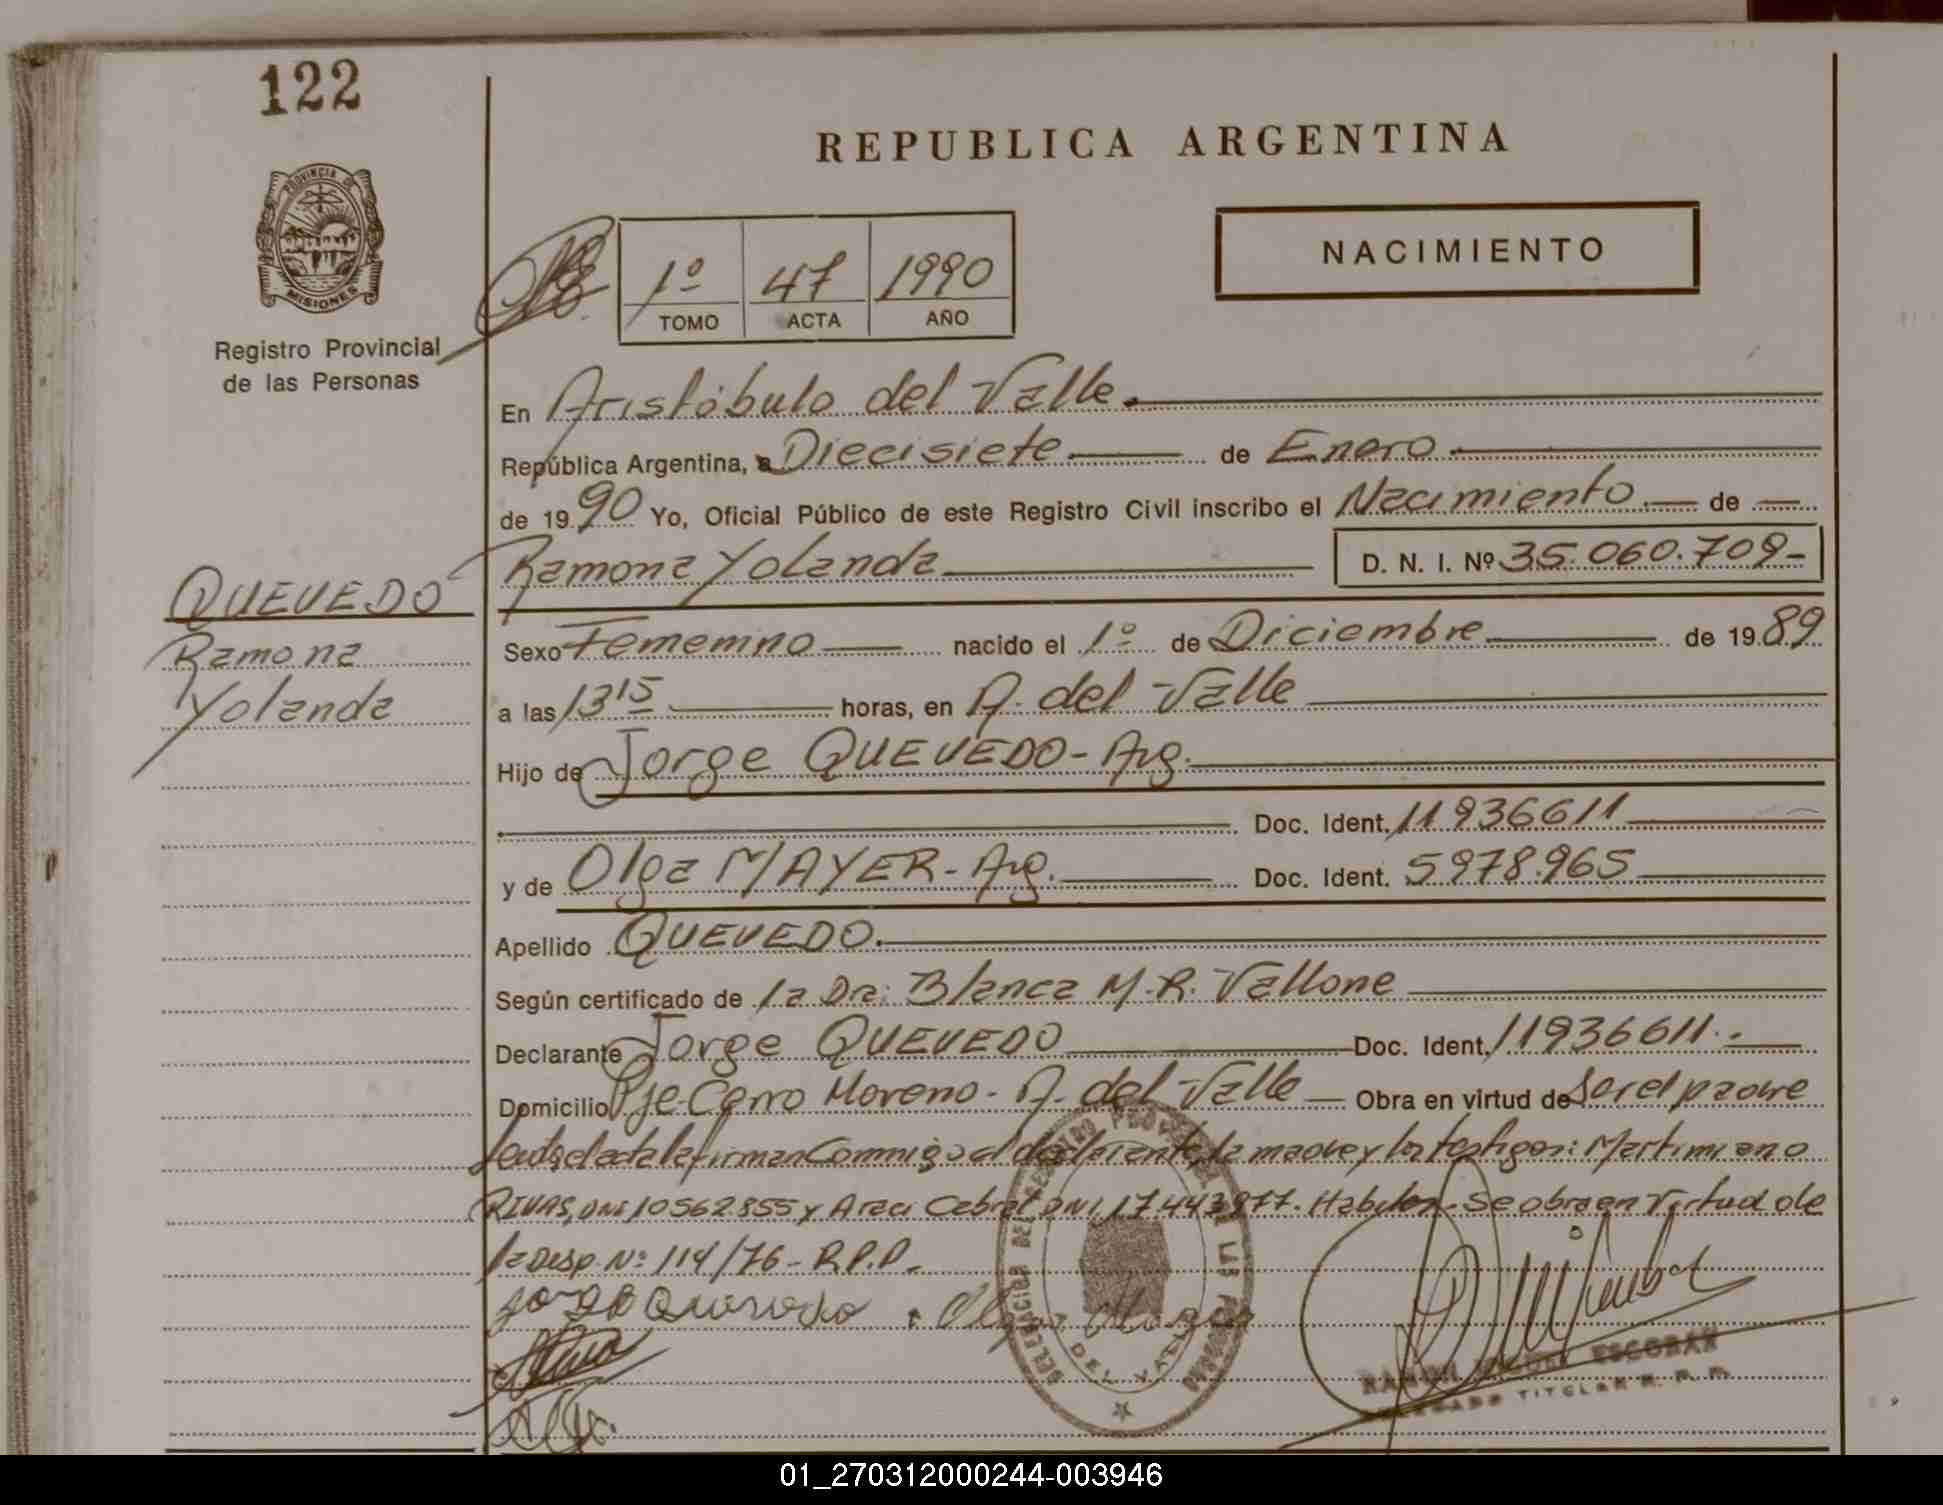 122
REPUBLICA ARGENTINA
PROVINCIA DE
MISIONES
Registro Provincial
de las Personas
1º 47 1990
TOMO ACTA AÑO
NACIMIENTO
En Aristóbulo del Valle.
República Argentina, a Diecisiete de Enero
de 1990 Yo, Oficial Público de este Registro Civil inscribo el Nacimiento de
Ramona Yolanda D. N. I. Nº 35.060.709-
QUEVEDO
Ramona
Yolanda
Sexo Femenino nacido el 1º de Diciembre de 1989
a las 13 15 horas, en A. del Valle
Hijo de Jorge QUEVEDO - Arg.
Doc. Ident. 11936611
y de Olga MAYER - Arg. Doc. Ident. 5978.965
Apellido QUEVEDO.
Según certificado de la Dra: Blanca M. R. Vallone
Declarante Jorge QUEVEDO Doc. Ident. 11936611.-
Domicilio Pje. Cerro Moreno - A. del Valle Obra en virtud de Ser el padre
Leida el acta la firman Conmigo el declarante, la madre y los testigos: Martimiano
RIVAS, DNI 10562855 y Araci Cabral DNI. 17.443977. Habiles - Se obra en Virtud de
la Disp. Nº 114/76 - R.P.P.
Jorge Quevedo
DEL VALLE
ESCOBAR
DELEGADO TITULAR R. P. P.
01_270312000244-003946